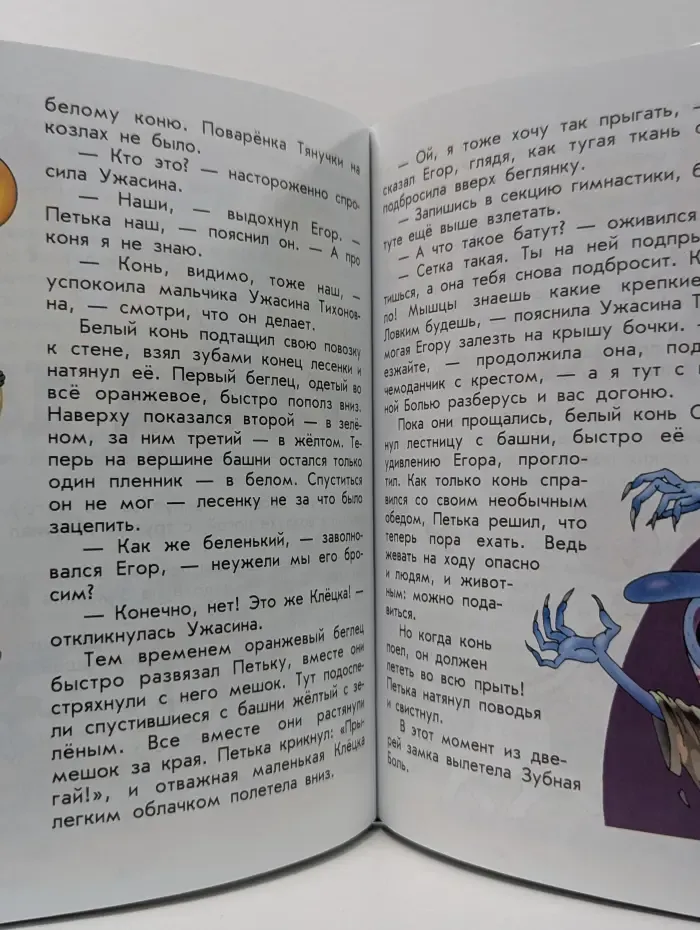 белому коню. Поварёнка Тянучки на
козлах не было.
— Кто это? — настороженно спро-
сила Ужасина.
— Наши, — выдохнул Егор. —
Петька наш, — пояснил он. — А про
коня я не знаю.
— Конь, видимо, тоже наш, —
успокоила мальчика Ужасина Тихонов-
на, — смотри, что он делает.
Белый конь подтащил свою повозку
к стене, взял зубами конец лесенки и
натянул её. Первый беглец, одетый во
всё оранжевое, быстро пополз вниз.
Наверху показался второй — в зелё-
ном, за ним третий — в жёлтом. Те-
перь на вершине башни остался только
один пленник — в белом. Спуститься
он не мог — лесенку не за что было
зацепить.
— Как же беленький, — заволно-
вался Егор, — неужели мы его бро-
сим?
— Конечно, нет! Это же Клёцка! —
откликнулась Ужасина.
Тем временем оранжевый беглец
быстро развязал Петьку, вместе они
стряхнули с него мешок. Тут подоспе-
ли спустившиеся с башни жёлтый с зе-
лёным. Все вместе они растянули
мешок за края. Петька крикнул: «Пры-
гай!», и отважная маленькая Клёцка
легким облачком полетела вниз.
— Ой, я тоже хочу так прыгать, —
сказал Егор, глядя, как тугая ткань с
подбросила вверх беглянку.
— Запишись в секцию гимнастики, б
туте ещё выше взлетать.
— А что такое батут? — оживился
— Сетка такая. Ты на ней подпры
тишься, а она тебя снова подбросит. К
ло! Мышцы знаешь какие крепкие
Ловким будешь, — пояснила Ужасина Т
могая Егору залезть на крышу бочки. —
езжайте, — продолжила она, под
чемоданчик с крестом, — а я тут с
ной Болью разберусь и вас догоню.
Пока они прощались, белый конь С
нул лестницу с башни, быстро её
удивлению Егора, прогло-
тил. Как только конь спра-
вился со своим необычным
обедом, Петька решил, что
теперь пора ехать. Ведь
жевать на ходу опасно
и людям, и живот-
ным: можно пода-
виться.
Но когда конь
поел, он должен
лететь во всю прыть!
Петька натянул поводья
и свистнул.
В этот момент из две-
рей замка вылетела Зубная
Боль.